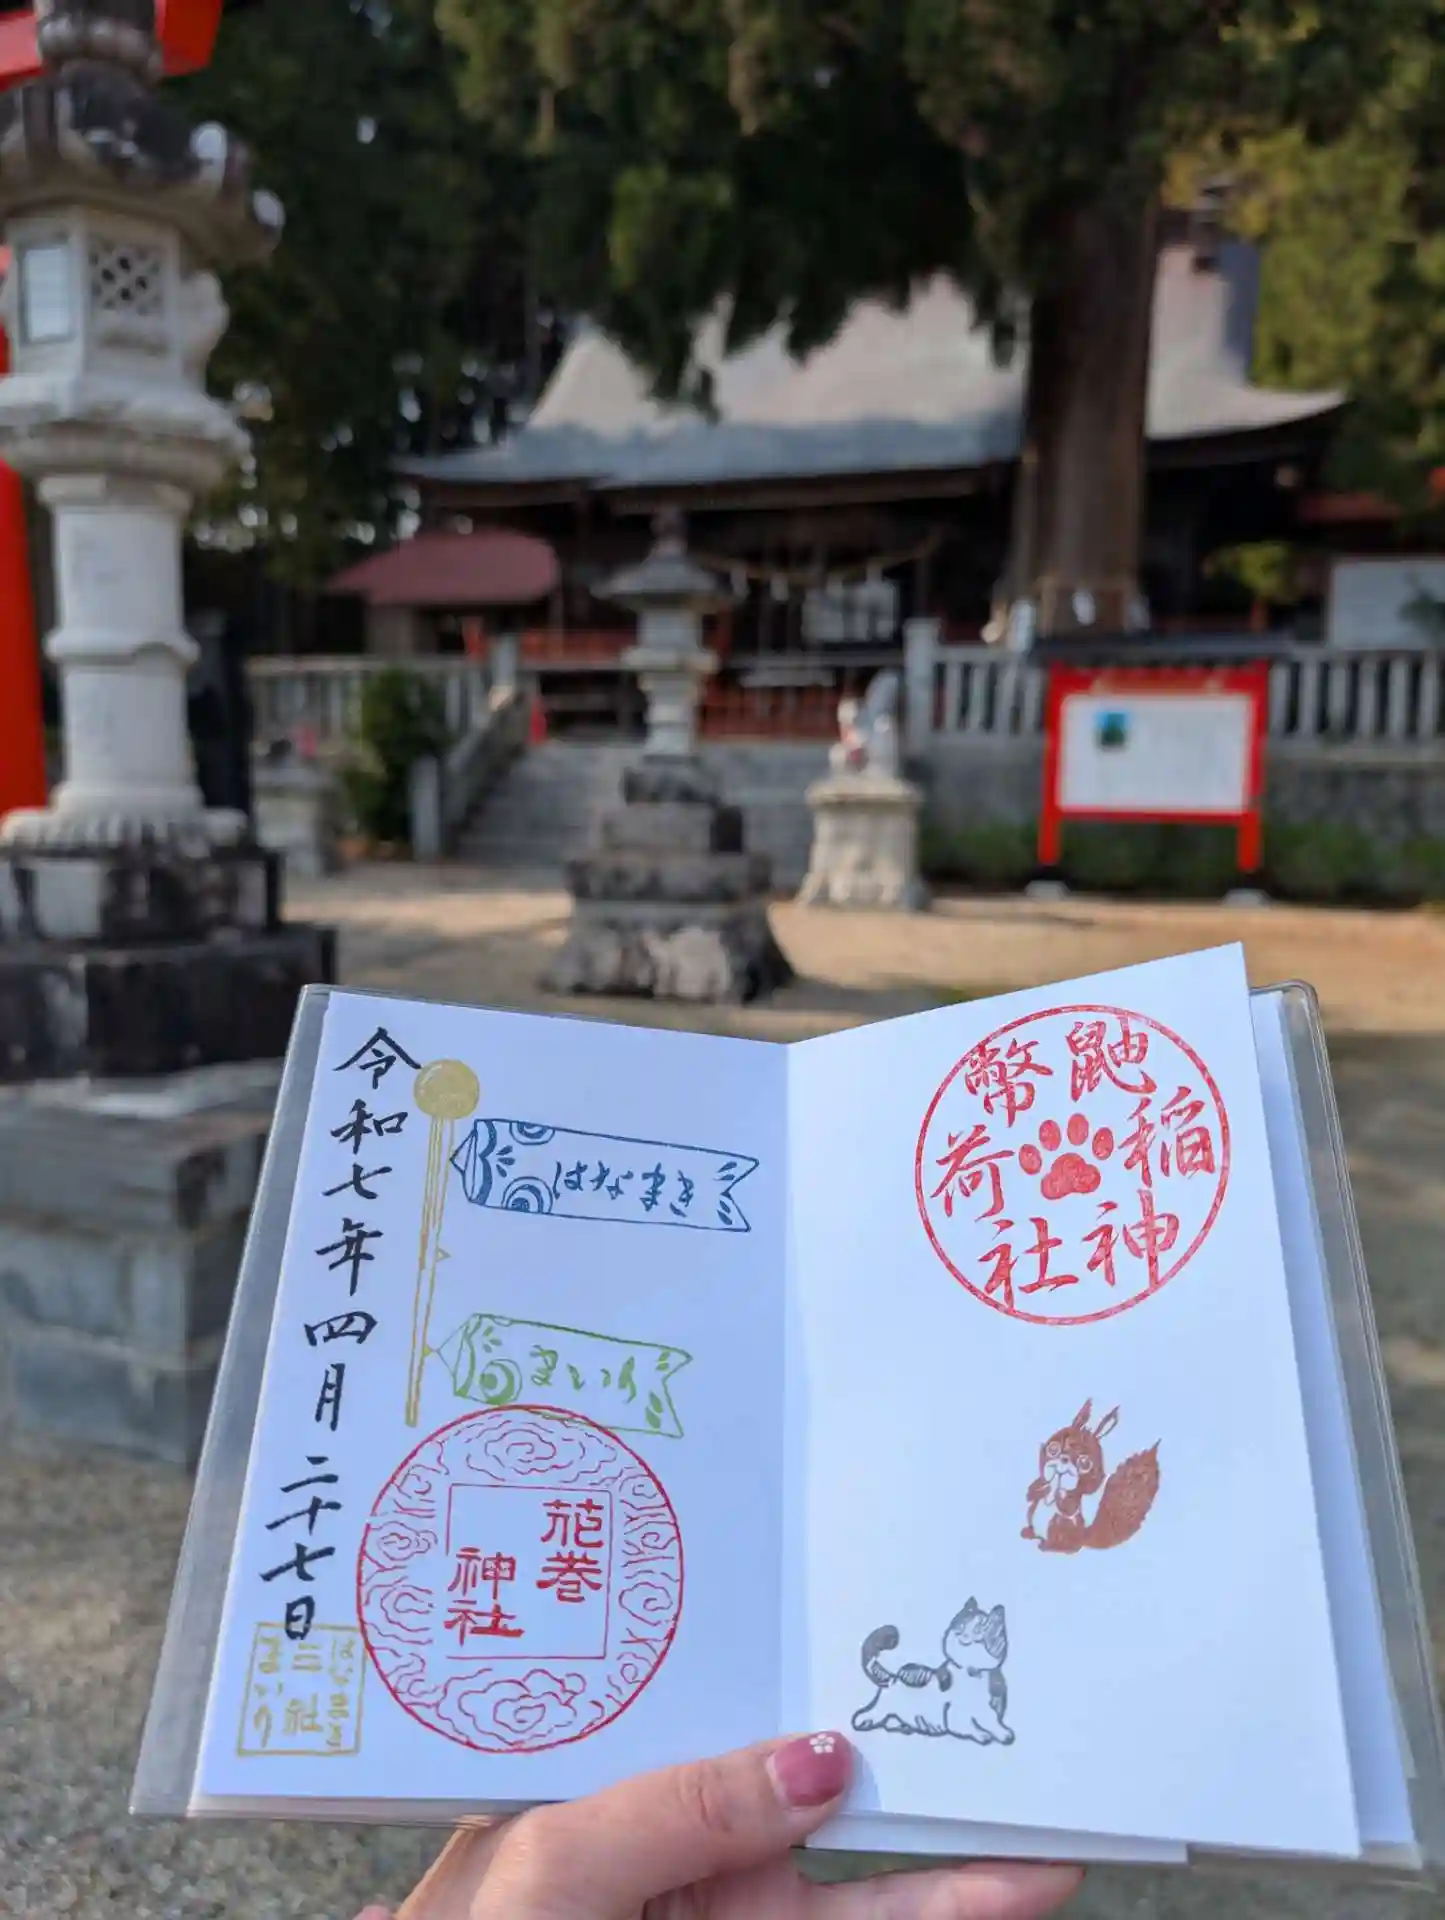 令和七年四月二十七日
はなまき
まいり
花巻
神社
はなまき
三社
まいり
鼬
幣
稲
荷
神
社